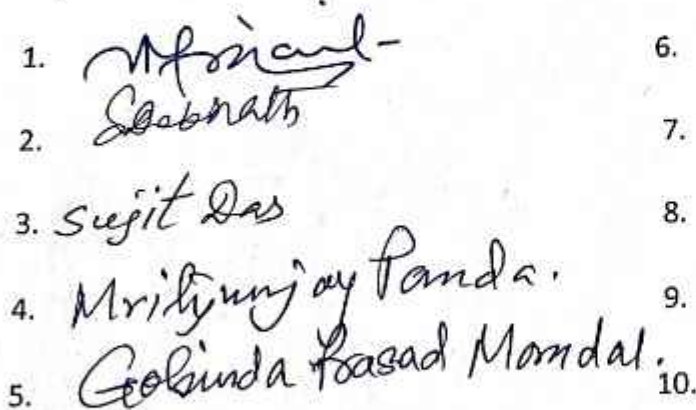 1.
6.
2. Seebnath
7.
3. Sujit Das
8.
4. Mrityunjoy Panda.
9.
5. Gobinda Prasad Mondal.
10.